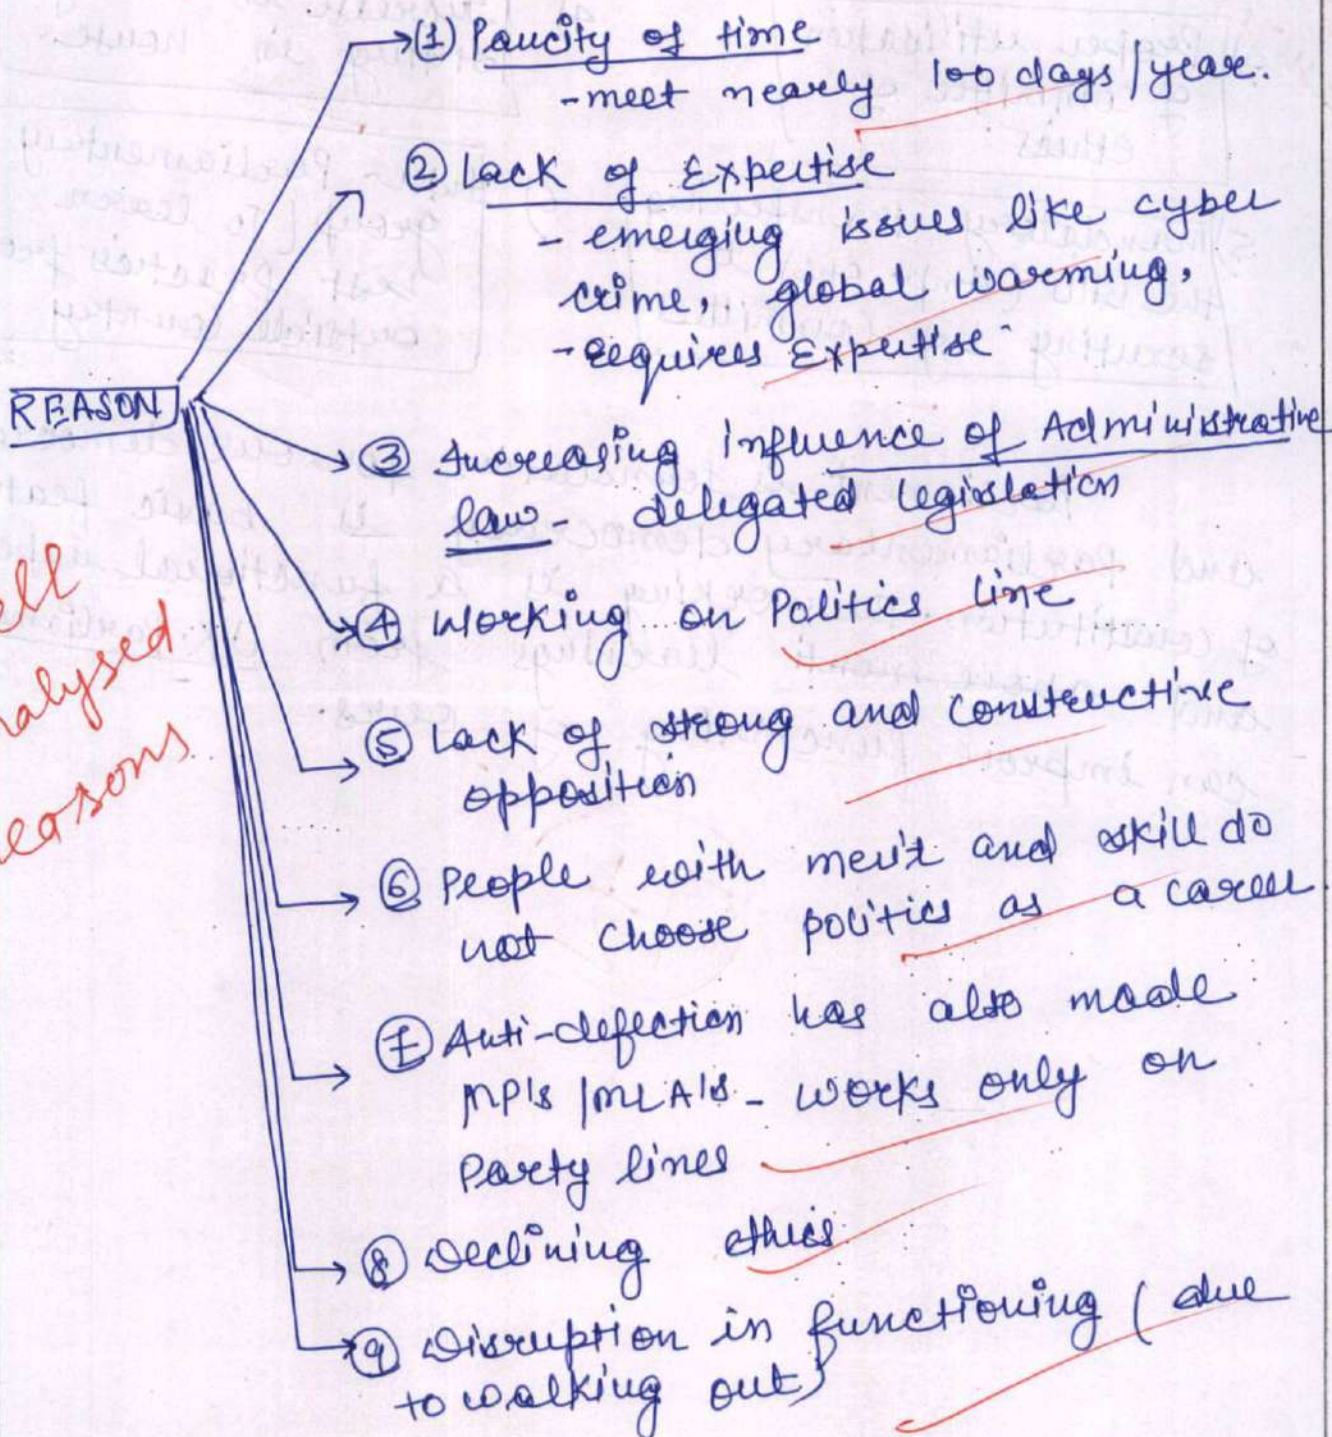 (1) Paucity of time
- meet nearly 100 days/year.
② Lack of Expertise
- emerging issues like cyber
crime, global warming,
- requires Expertise
REASON
③ Increasing influence of Administrative
law - delegated legislation
④ Working on Politics line
⑤ Lack of strong and constructive
opposition
⑥ People with merit and skill do
not choose politics as a career
⑦ Anti-defection has also made
MP's/MLA's - works only on
Party lines
⑧ Declining ethics
⑨ Disruption in functioning (due
to walking out)
reasons